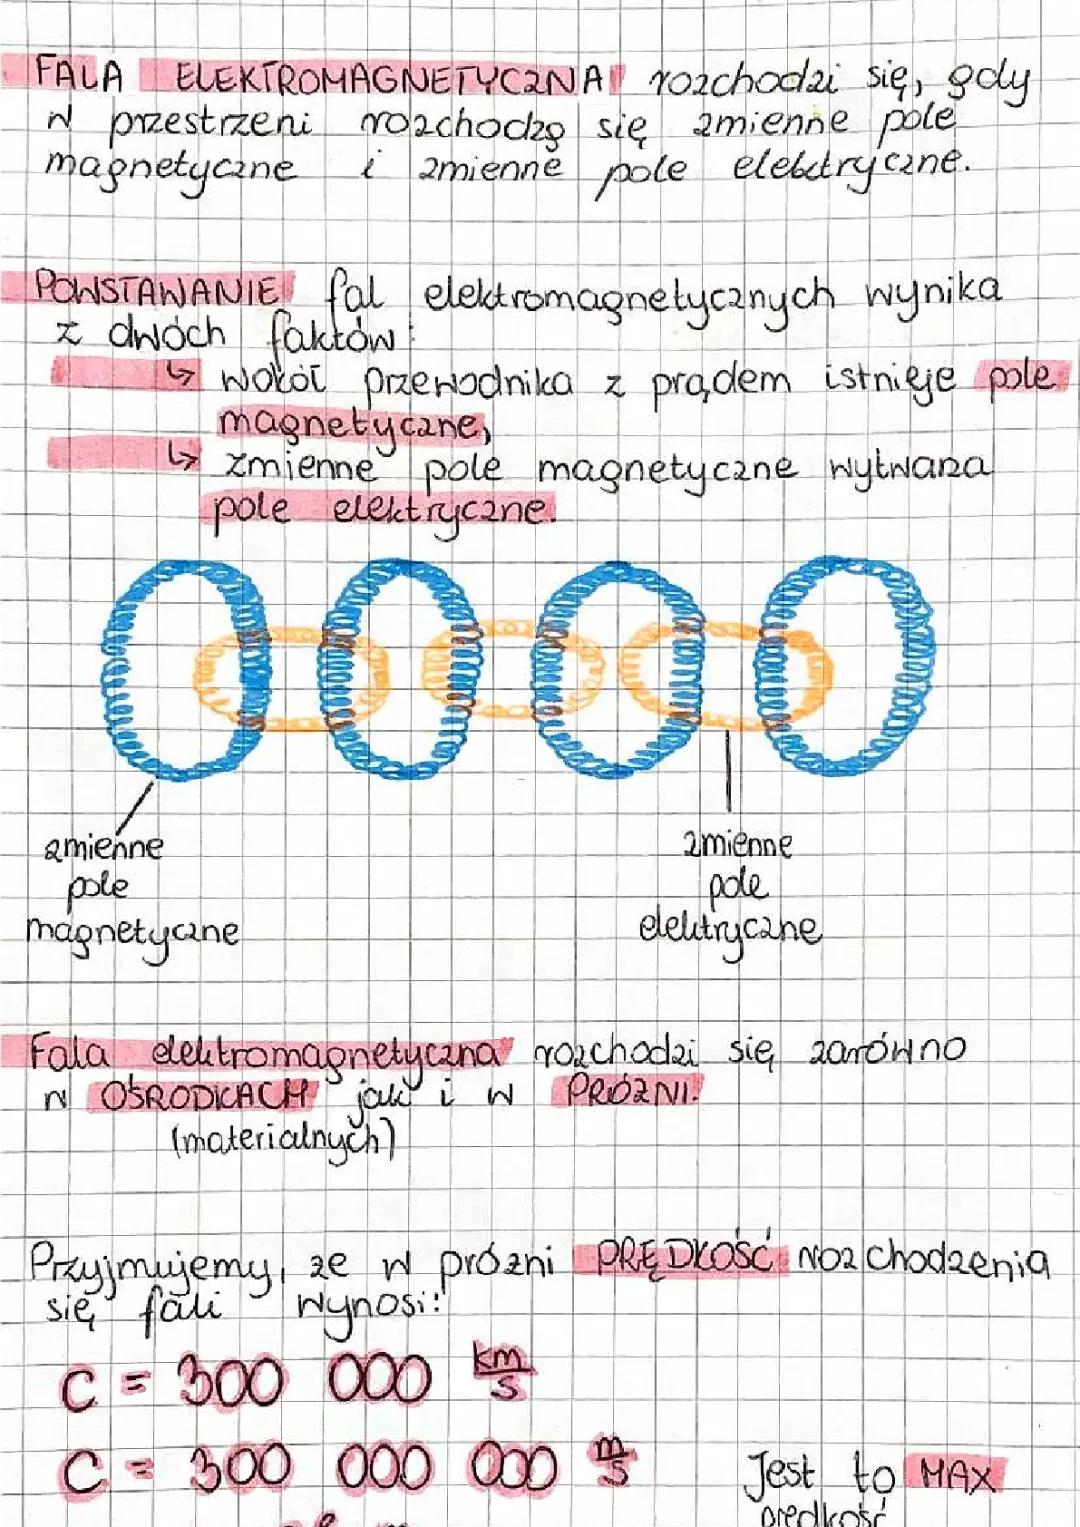 FALA ELEKTROMAGNETYCZNA rozchodzi się, gdy
w przestrzeni rozchodzą się zmienne pole
magnetyczne i zmienne pole elektryczne.
POWSTAWANIE fal elektromagnetycznych wynika
z dwóch faktów:
↳ wokół przewodnika z prądem istnieje pole
magnetyczne,
↳ zmienne pole magnetyczne wytwarza
pole elektryczne.
zmienne
pole
magnetyczne
zmienne
pole
elektryczne
Fala elektromagnetyczna rozchodzi się zarówno
w OŚRODKACH jak i w PRÓŻNI.
(materialnych)
Przyjmujemy, że w próżni PRĘDKOŚĆ rozchodzenia
się fali wynosi:
C = 300 000 km/s
C = 300 000 000 m/s
Jest to MAX
prędkość